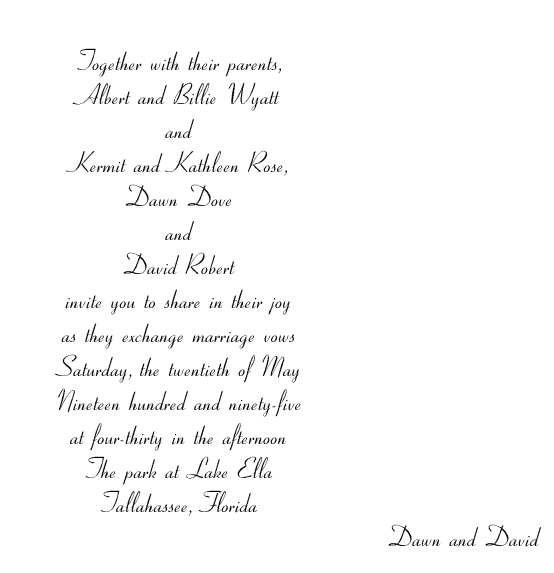 Together with their parents,
Albert and Billie Wyatt
and
Kermit and Kathleen Rose,
Dawn Dove
and
David Robert
invite you to share in their joy
as they exchange marriage vows
Saturday, the twentieth of May
Nineteen hundred and ninety-five
at four-thirty in the afternoon
The park at Lake Ella
Tallahassee, Florida
Dawn and David